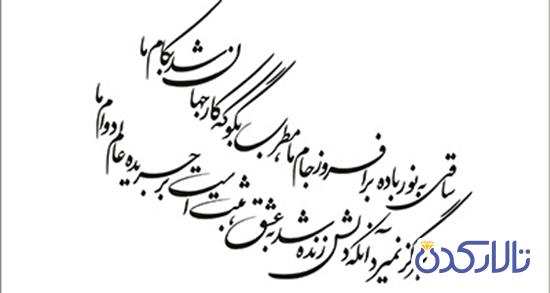 ساقی به نور باده برافروز جام ما
مطرب بگو که کار جهان شد بکام ما
هرگز نمیرد آنکه دلش زنده شد به عشق
ثبت است بر جریده عالم دوام ما
تالارکدن